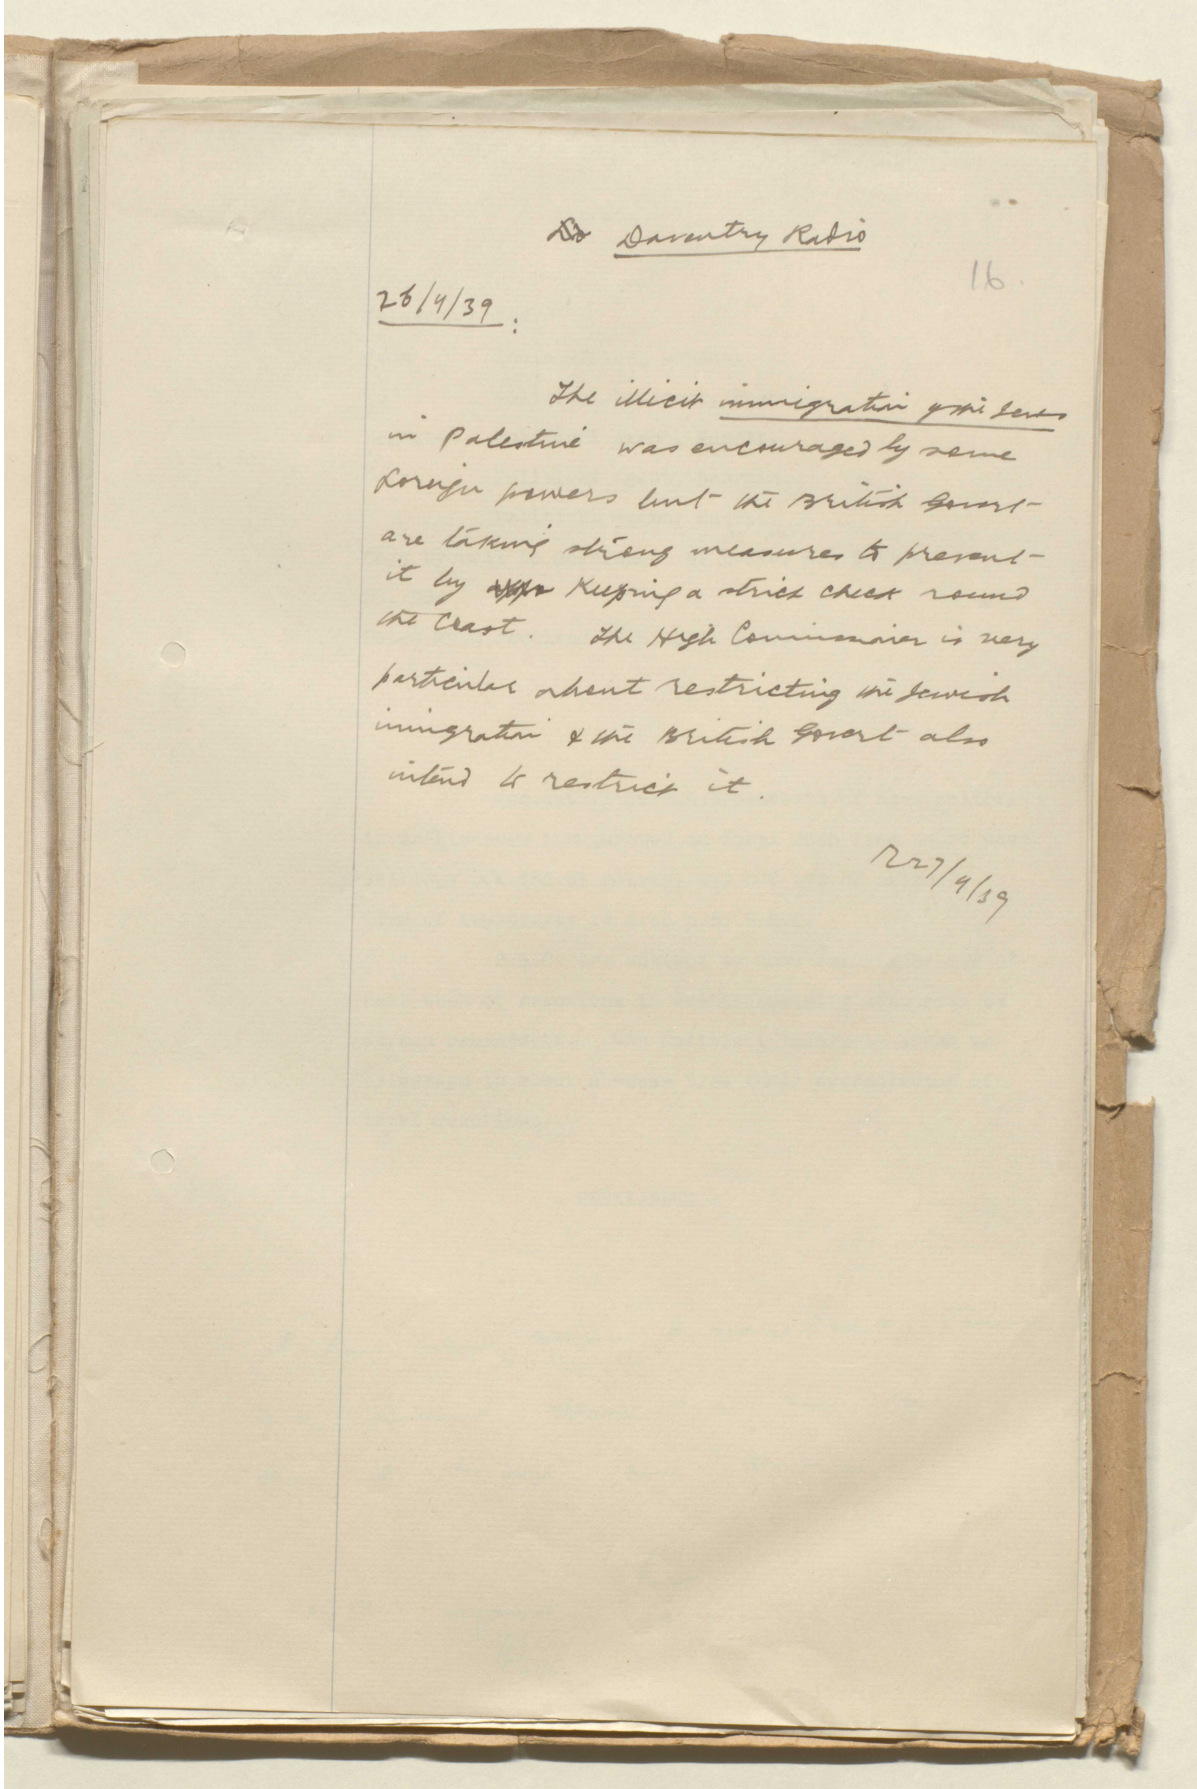 Daventry Radio
16.
26/4/39 :
The illicit immigration of the Jews
in Palestine was encouraged by some
foreign powers but the British Govert
are taking strong measures to prevent
it by keeping a strict check round
the Coast. The High Commissioner is very
particular about restricting the Jewish
immigration & the British Govert also
intend to restrict it.
27/4/39